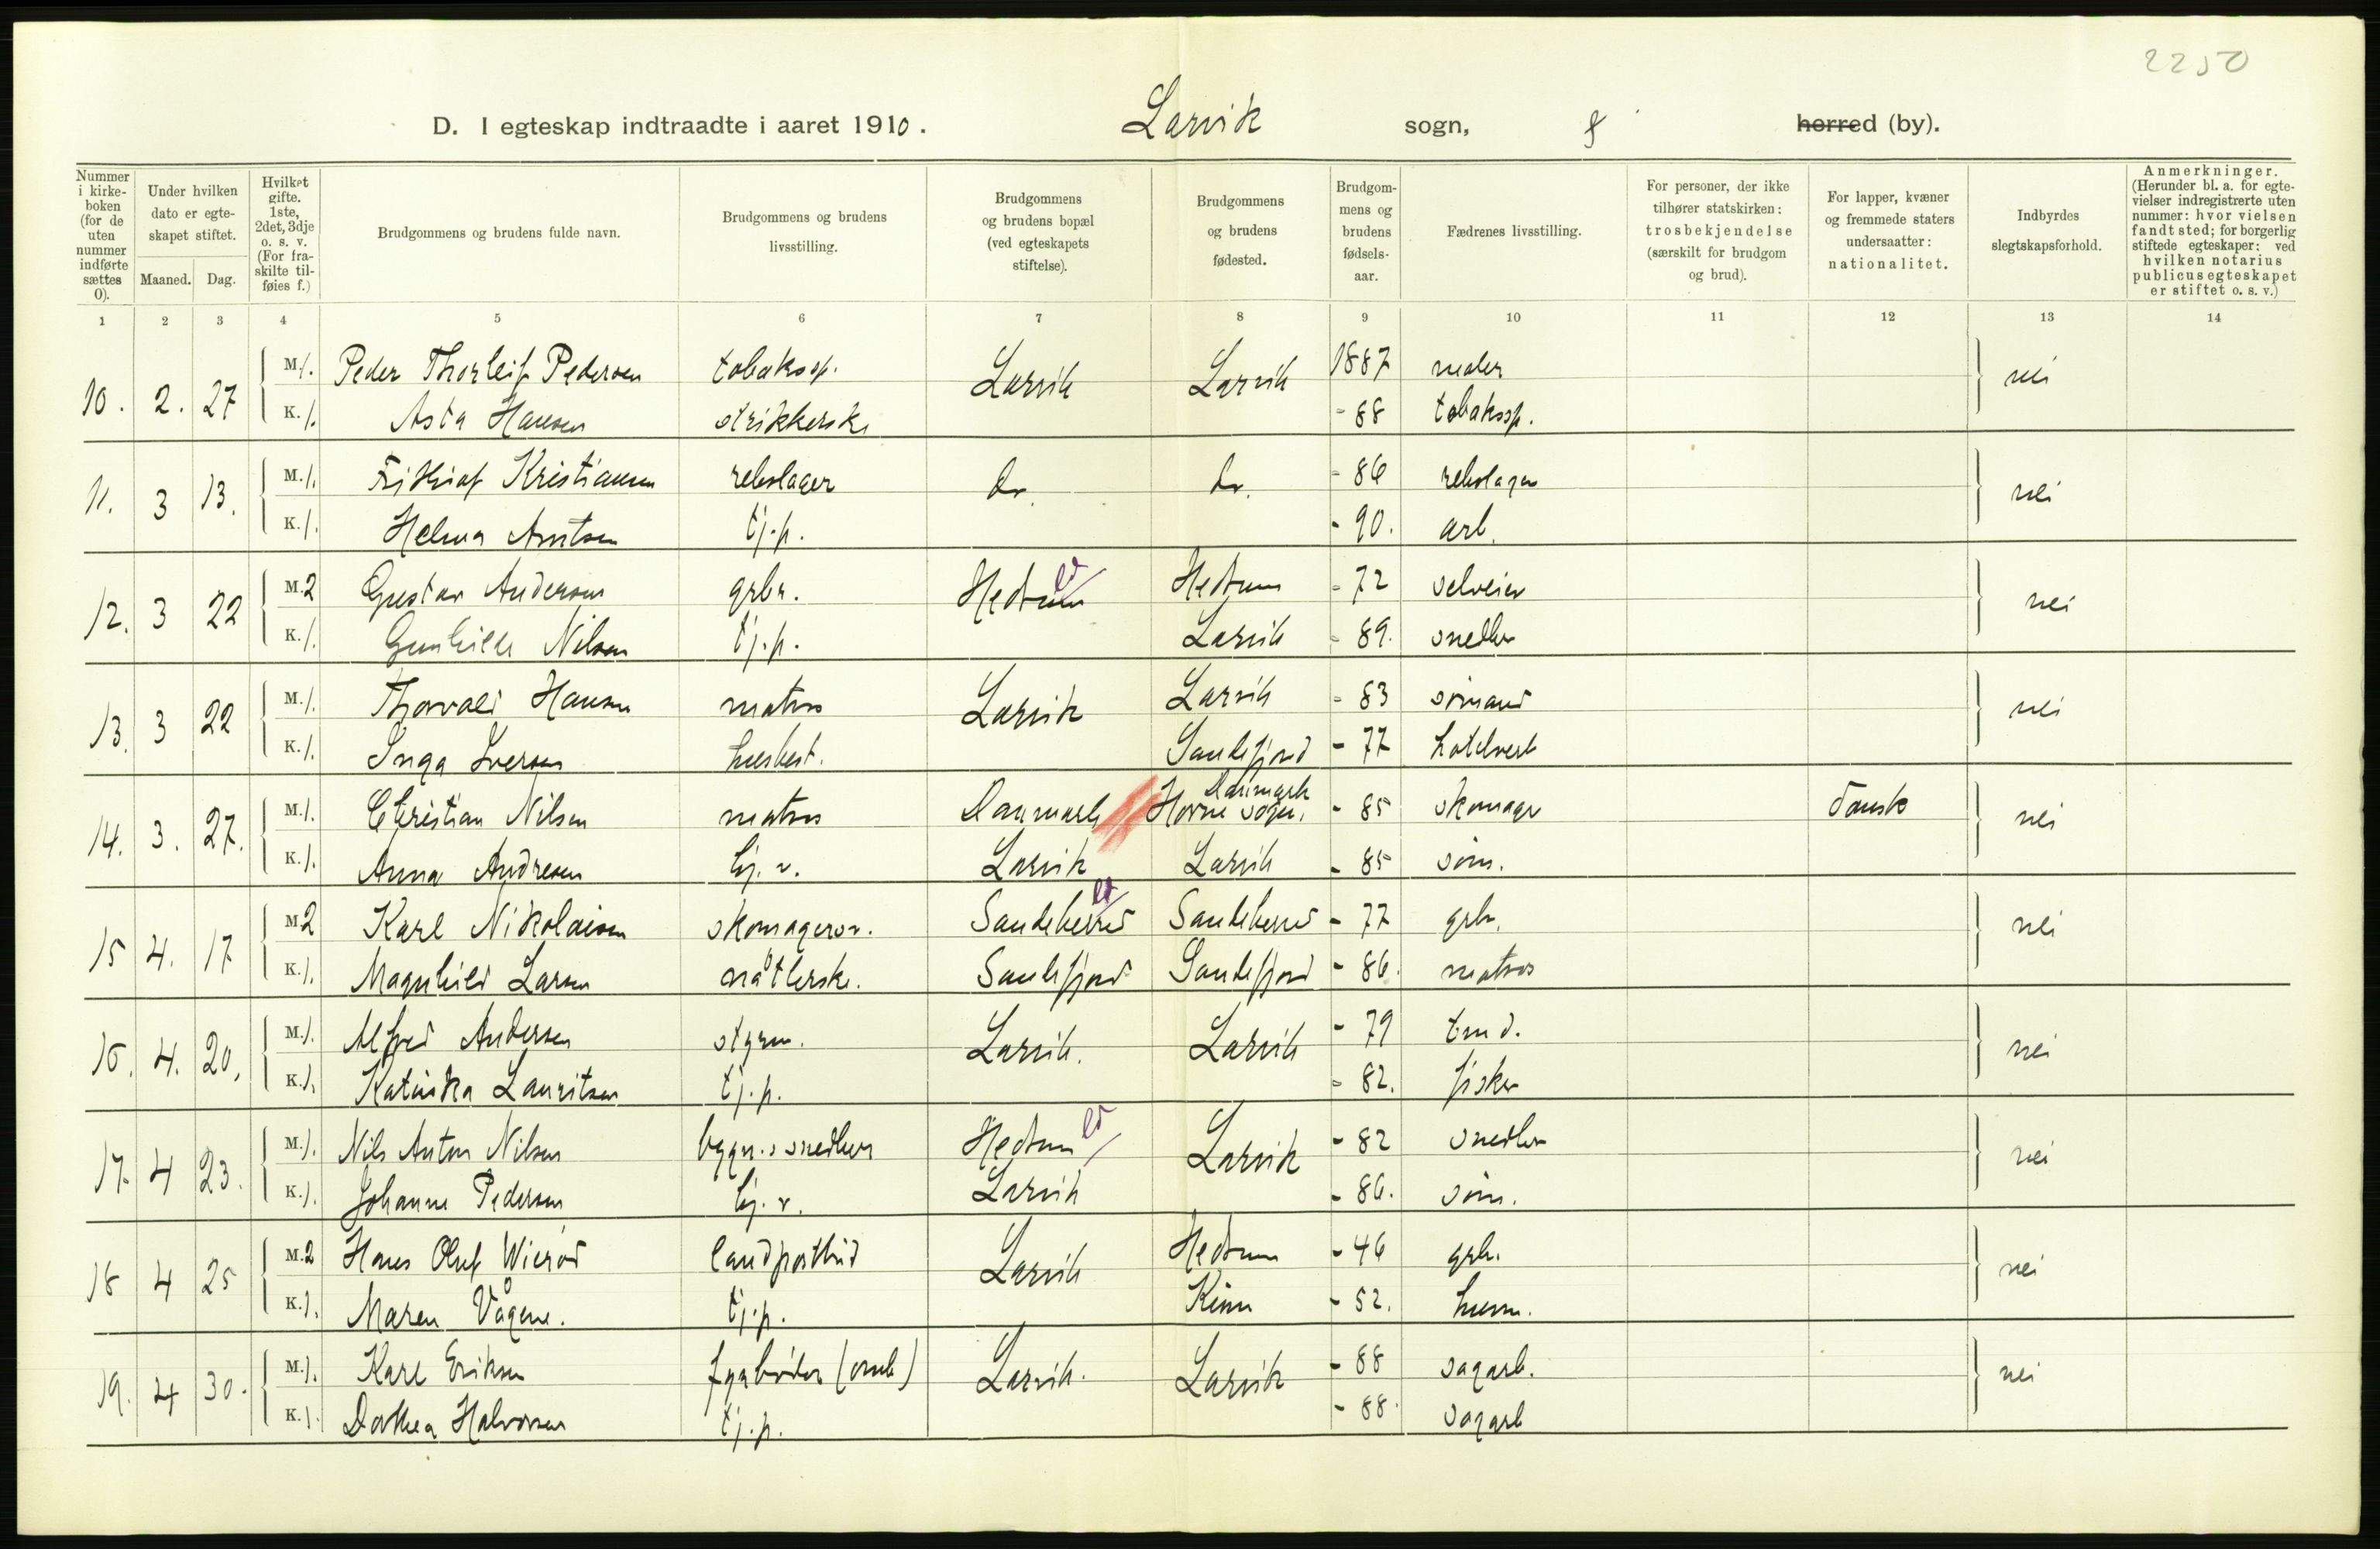 2250
D. I egteskap indtraadte i aaret 1910. Larvik sogn, herred (by).
Nummer i kirkeboken (for de uten nummer indførte sættes 0).
Under hvilken dato er egteskapet stiftet.
Maaned. Dag.
Hvilket gifte. 1ste, 2det, 3dje o. s. v. (For fraskilte tilføies f.)
Brudgommens og brudens fulde navn.
Brudgommens og brudens livsstilling.
Brudgommens og brudens bopæl (ved egteskapets stiftelse).
Brudgommens og brudens fødested.
Brudgommens og brudens fødselsaar.
Fædrenes livsstilling.
For personer, der ikke tilhører statskirken: trosbekjendelse (særskilt for brudgom og brud).
For lapper, kvæner og fremmede staters undersaatter: nationalitet.
Indbyrdes slegtskapsforhold.
Anmerkninger. (Herunder bl. a. for egtevielser indregistrerte uten nummer: hvor vielsen fandt sted; for borgerlig stiftede egteskaper: ved hvilken notarius publicus egteskapet er stiftet o. s. v.)
1 2 3 4 5 6 7 8 9 10 11 12 13 14
10. 2. 27 M. 1. Peder Thorleif Pedersen tobakssp. Larvik Larvik 1887 maler nei
K. 1. Asta Hansen strikkerske - 88 tobakssp.
11. 3 13. M. 1. Frithiof Kristiansen rebslager do. do. - 86 rebslager nei
K. 1. Helma Arntsen tj.p. - 90. arb.
12. 3 22 M. 2 Gustav Andersen grbr. Hedrum Hedrum - 72 selveier nei
K. 1. Gunhilde Nilsen tj.p. Larvik - 89. snedker
13. 3 22 M. 1. Thorvald Hansen matros Larvik Larvik - 83 sømand nei
K. 1. Inga Iversen husbest. Sandefjord - 77 hotelvert
14. 3. 27. M. 1. Christian Nilsen matros Danmark Horne sogn, Danmark - 85 skomager dansk nei
K. 1. Anna Andresen tj. v. Larvik Larvik - 85 søm.
15 4. 17 M. 2 Karl Nikolaisen skomagersv. Sandeherred Sandeherred - 77 grbr. nei
K. 1. Magnhild Larsen nåtlerske. Sandefjord Sandefjord - 86. matros
16. 4. 20. M. 1. Alfred Andersen styrm. Larvik. Larvik - 79 tmd. nei
K. 1. Katinka Lauritsen tj.p. - 82. fisker
17. 4 23. M. 1. Nils Anton Nilsen bygn.ssnedker Hedrum Larvik - 82 snedker nei
K. 1. Johanne Pedersen tj. v. Larvik - 86. søm.
18 4 25 M. 2 Hans Oluf Wierød landpostbud Larvik Hedrum - 46 grbr. nei
K. 1. Maren Vågene. tj.p. Kinn - 52. husm.
19. 4 30. M. 1. Karl Eriksen fyrbøder (omb) Larvik. Larvik - 88 sagarb. nei
K. 1. Dorthea Halvorsen tj.p. - 88. sagarb